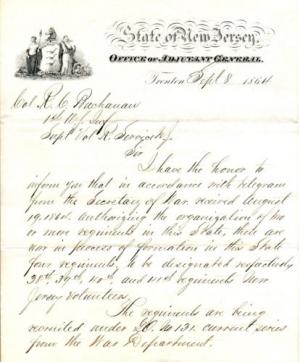 State of New Jersey,
Office of Adjutant General.
Trenton Sept 8, 1864
Col R. C. Buchanan
1st U.S. Inf
Supt Vol R. Service N.J.
Sir
I have the honor to
inform you that in accordance with telegram
from the Secretary of War received August
19, 1864. authorizing the organization of two
or more regiments in this State, there are
now in process of formation in this State
four regiments, to be designated respectively
38th, 39th, 40th, and 41st regiments New
Jersey Volunteers.
The regiments are being
recruited under G.O. No 131. current series
from the War Department.